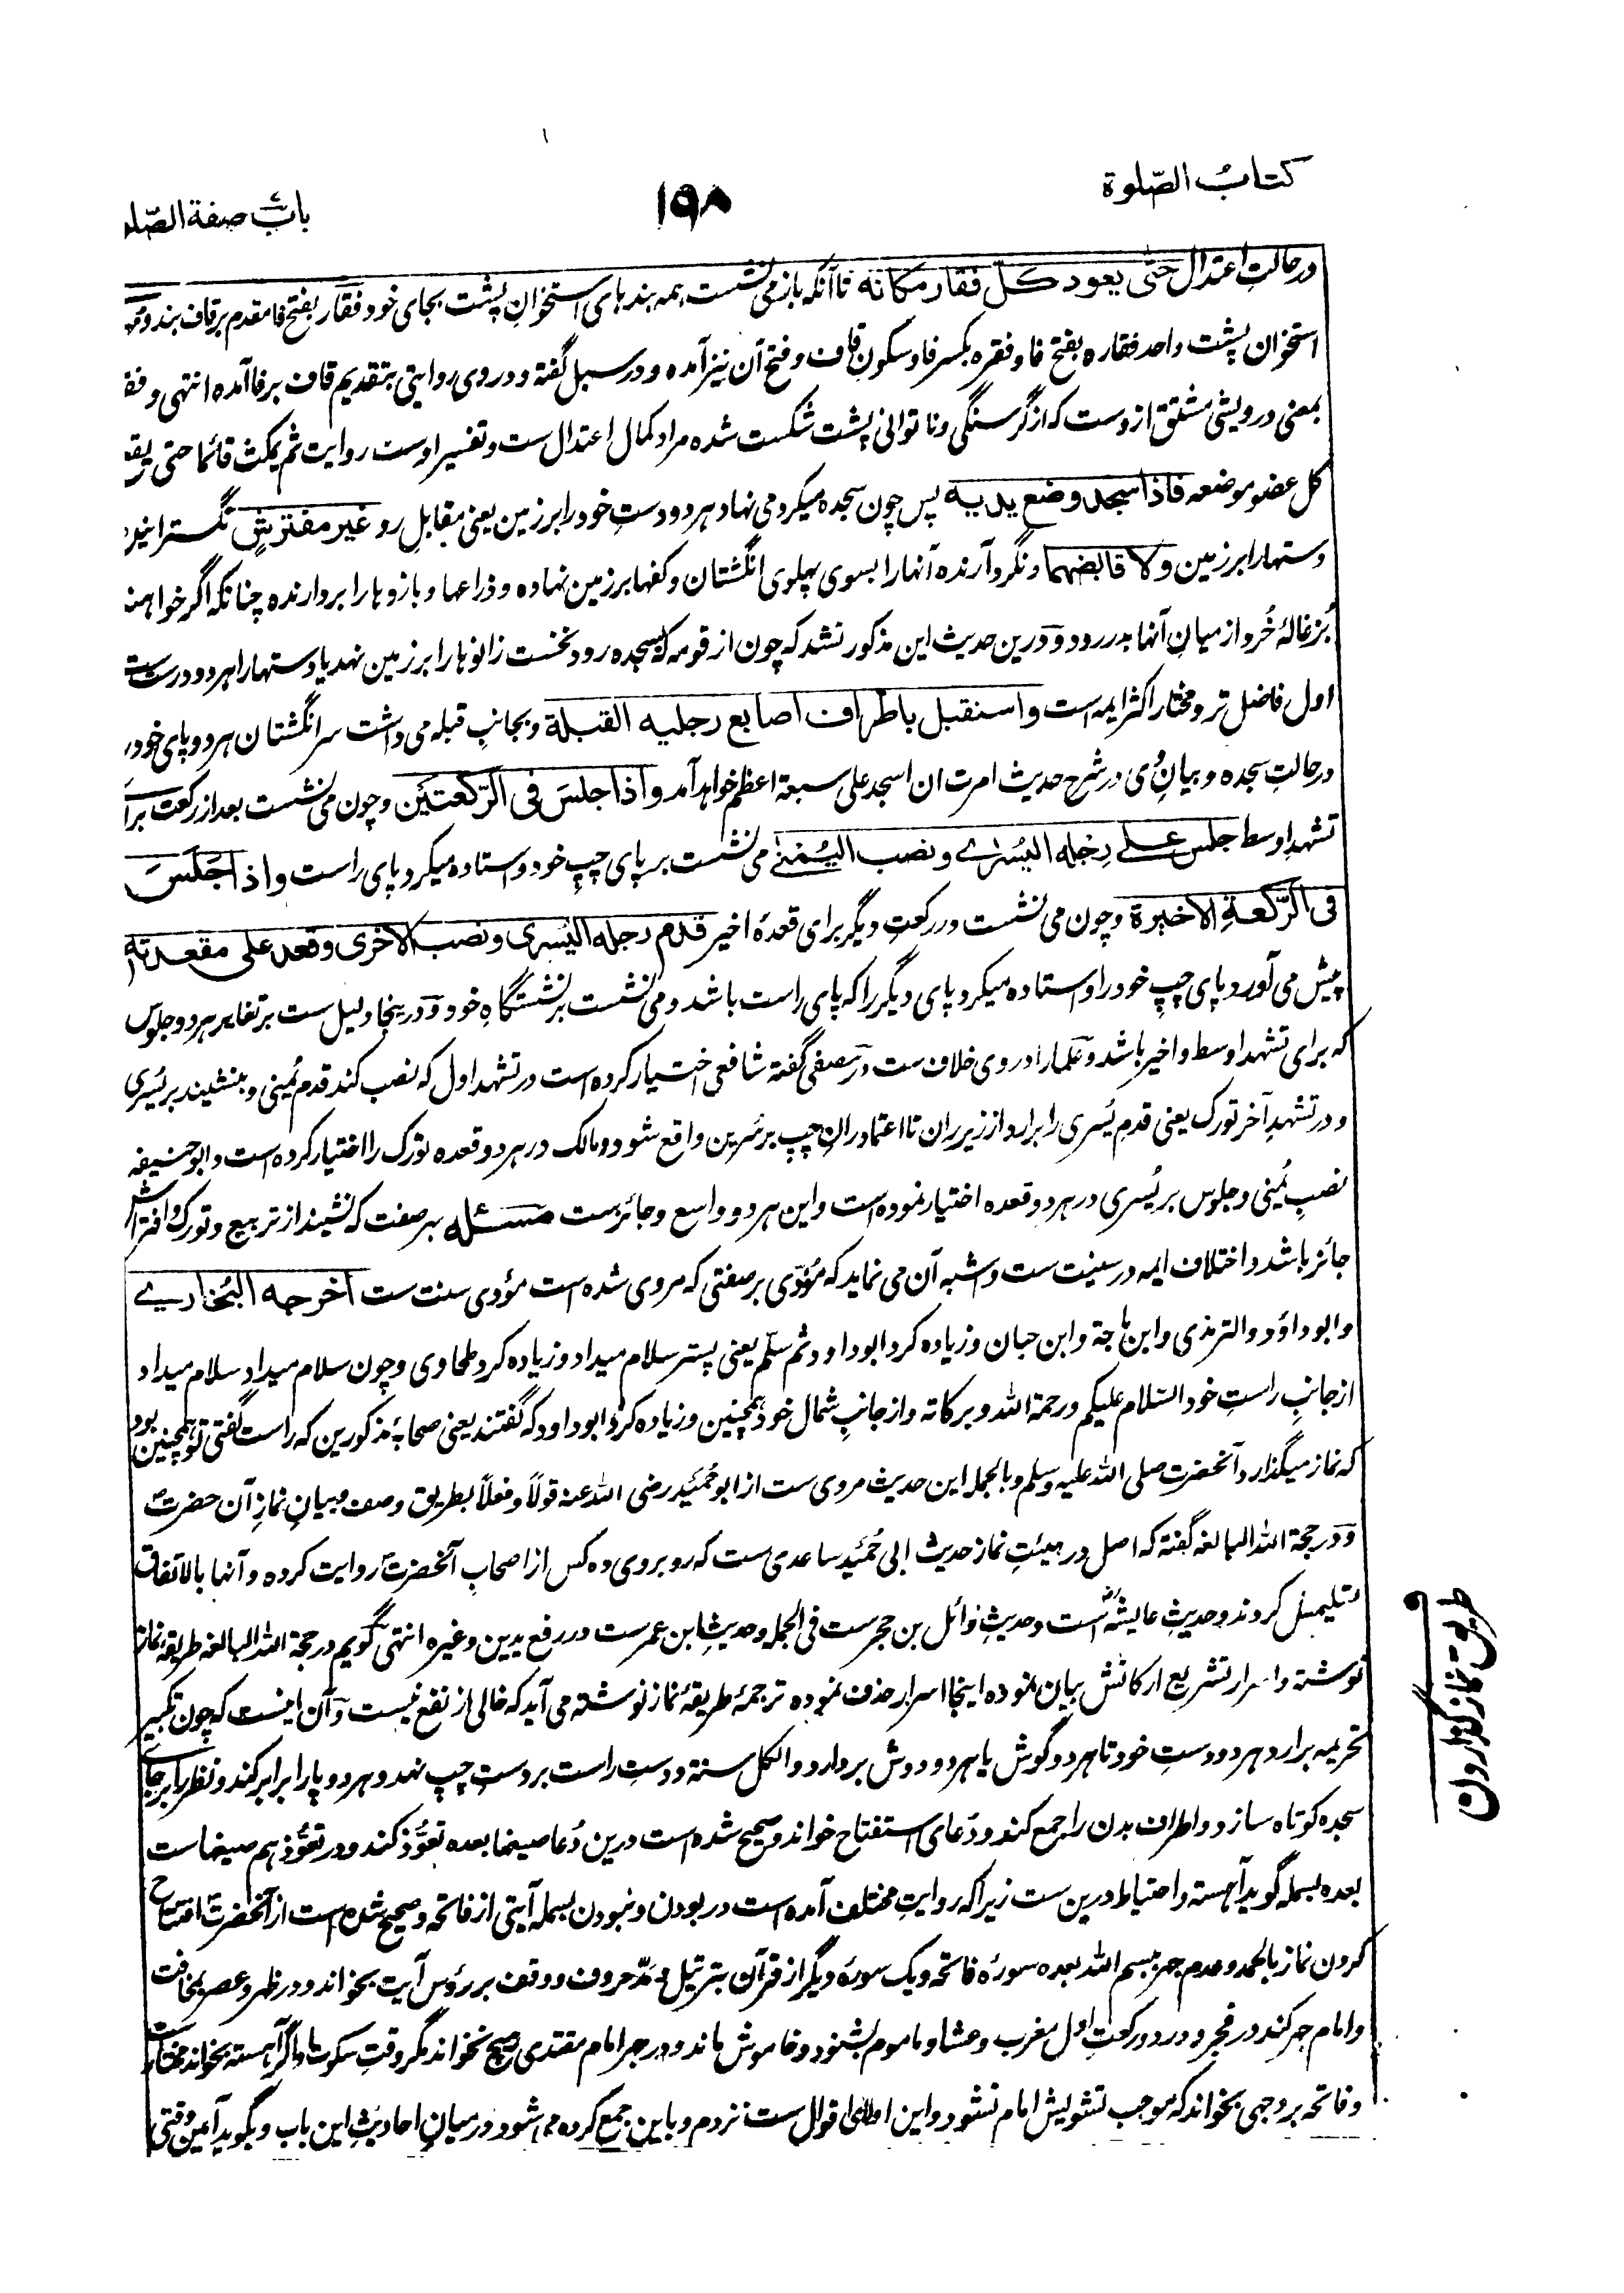 کتاب الصّلوة
۱۹۸
باب صفة الصّلو
در حالتِ اعتدال حتی یعود کل فقار مکانه تا آنکه باز می نشست همه بندهای استخوانِ پشت بجای خود فقار بفتح فا مقدم بر قاف بند و
استخوان پشت واحد فقاره بفتح فا و فقره بکسر فا و سکونِ قاف و فتح آن نیز آمده و در سبل گفته و در وی روایتی بتقدیم قاف بر فا آمده انتهی و فقر
بمعنی درویشی مشتق ازوست که از گرسنگی و ناتوانی پشت شکست شده مراد کمال اعتدال ست و تفسیر اوست روایت ثم یمکث قائما حتی یقع
کل عضو موضعه فاذا سجد وضع یدیه پس چون سجده میکرد می نهاد هر دو دستِ خود را بر زمین یعنی مقابلِ رو غیر مفترشٍ نگسترانیده
دستها را بر زمین ولا قابضهما و نگرد آرنده آنها را بسوی پهلوی انگشتان و کفها بر زمین نهاده و ذراعها و بازوها را بردارنده چنانکه اگر خواهند
بُزغالۀ خُرد از میانِ آنها بدر رود و درین حدیث این مذکور نشد که چون از قومه که بسجده رود نخست زانوها را بر زمین نهد یا دستها را هر دو درست
اول فاضل تر و مختار اکثر ایمه است واستقبل باطراف اصابع رجلیه القبلة و بجانبِ قبله می داشت سر انگشتان هر دو پای خود را
در حالتِ سجده و بیانِ وی در شرح حدیث امرت ان اسجد علی سبعة اعظم خواهد آمد واذا جلسَ فی الرّکعتین و چون می نشست بعد از رکعت برای
تشهد اوسط جلس علے رجله الیُسرے ونصب الیُمنے می نشست بر پای چپِ خود و استاده میکرد پای راست واذا جَلَسَ
فی الرّکعةِ الاخیرة و چون می نشست در رکعتِ دیگر برای قعدۀ اخیر قدم رجله الیسری ونصب الاخری وقعد علی مقعدته
پیش می آورد پای چپِ خود را و استاده میکرد پای دیگر را که پای راست باشد و می نشست بر نشستگاهِ خود و درینجا دلیل ست بر تغایر هر دو جلوس
که برای تشهد اوسط و اخیر باشد و علما را در وی خلاف ست در مصفی گفته شافعی اختیار کرده است در تشهد اول که نصب کند قدم یُمنی و بنشیند بر یُسری
و در تشهدِ آخر تورک یعنی قدمِ یُسری را برارد از زیر ران تا اعتماد رانِ چپ بر سُرین واقع شود و مالک در هر دو قعده تورک را اختیار کرده است و ابو حنیفه
نصبِ یُمنی و جلوس بر یُسری در هر دو قعده اختیار نموده است و این هر دو واسع و جائز ست مسئله بهر صفت که نشیند از تربیع و تورک و افتراش
جائز باشد و اختلاف ایمه در سنیت ست و اشبه آن می نماید که مؤدّی بر صفتی که مروی شده است مؤدی سنت ست اخرجه البُخاریے
وابو داؤد والترمذی وابن ماجة وابن حبان و زیاده کرد ابو داود ثم سلّم یعنی پستر سلام میداد و زیاده کرد طحاوی و چون سلام میداد سلام میداد
از جانبِ راستِ خود السّلام علیکم ورحمة الله وبرکاته و از جانبِ شمال خود همچنین و زیاده کرد ابو داود که گفتند یعنی صحابۀ مذکورین که راست گفتی تو همچنین بود
که نماز میگذارد آنحضرت صلی الله علیه وسلم و بالجمله این حدیث مروی ست از ابو حُمَید رضی الله عنه قولاً و فعلاً بطریق وصف و بیانِ نمازِ آن حضرت
و در حجة الله البالغه گفته که اصل در هیئتِ نماز حدیث ابی حُمَید ساعدی ست که روبروی ده کس از اصحابِ آنحضرت روایت کرده و آنها بالاتفاق
تسلیمش کردند و حدیثِ عایشه است و حدیثِ وائل بن حجر ست فی الجمله و حدیثِ ابن عمر ست در رفع یدین و غیره انتهی گویم در حجة الله البالغه طریقۀ نماز
نوشته و اسرار تشریع ارکانش بیان نموده اینجا اسرار حذف نموده ترجمۀ طریقۀ نماز نوشته می آید که خالی از نفع نیست و آن اینست که چون تکبیر
تحریمه برارد هر دو دستِ خود تا هر دو گوش یا هر دو دوش بردارد و الکل سنة و دستِ راست بر دستِ چپ نهد و هر دو پا را برابر کند و نظر را بر جای
سجده کوتاه سازد و اطراف بدن را جمع کند و دُعای استفتاح خواند و صحیح شده است درین دُعا صیغها بعده تعوُّذ کند و در تعوُّذ هم صیغهاست
بعده بسمله گوید آهسته و احتیاط درین ست زیرا که روایتِ مختلف آمده است در بودن و نبودن بسمله آیتی از فاتحه و صحیح شده است از آنحضرت افتتاح
کردن نماز بالحمد و عدم جهر ببسم الله بعده سورۀ فاتحه و یک سورۀ دیگر از قرآن بترتیل و مدّ حروف و وقف بر رؤس آیت بخواند و در ظهر و عصر مخافت
و امام جهر کند در فجر و در دو رکعتِ اول مغرب و عشا و ماموم بشنود و خاموش ماند و در جهر امام مقتدی هیچ نخواند مگر وقتِ سکوت و اگر آهسته بخواند مختار ست
و فاتحه بر وجهی بخواند که موجب تشویش امام نشود و این اولی اقوال ست نزدم و باین جمع کرده می شود در میانِ احادیثِ این باب و بگوید آمین وقتی
طریق نماز گزاردن